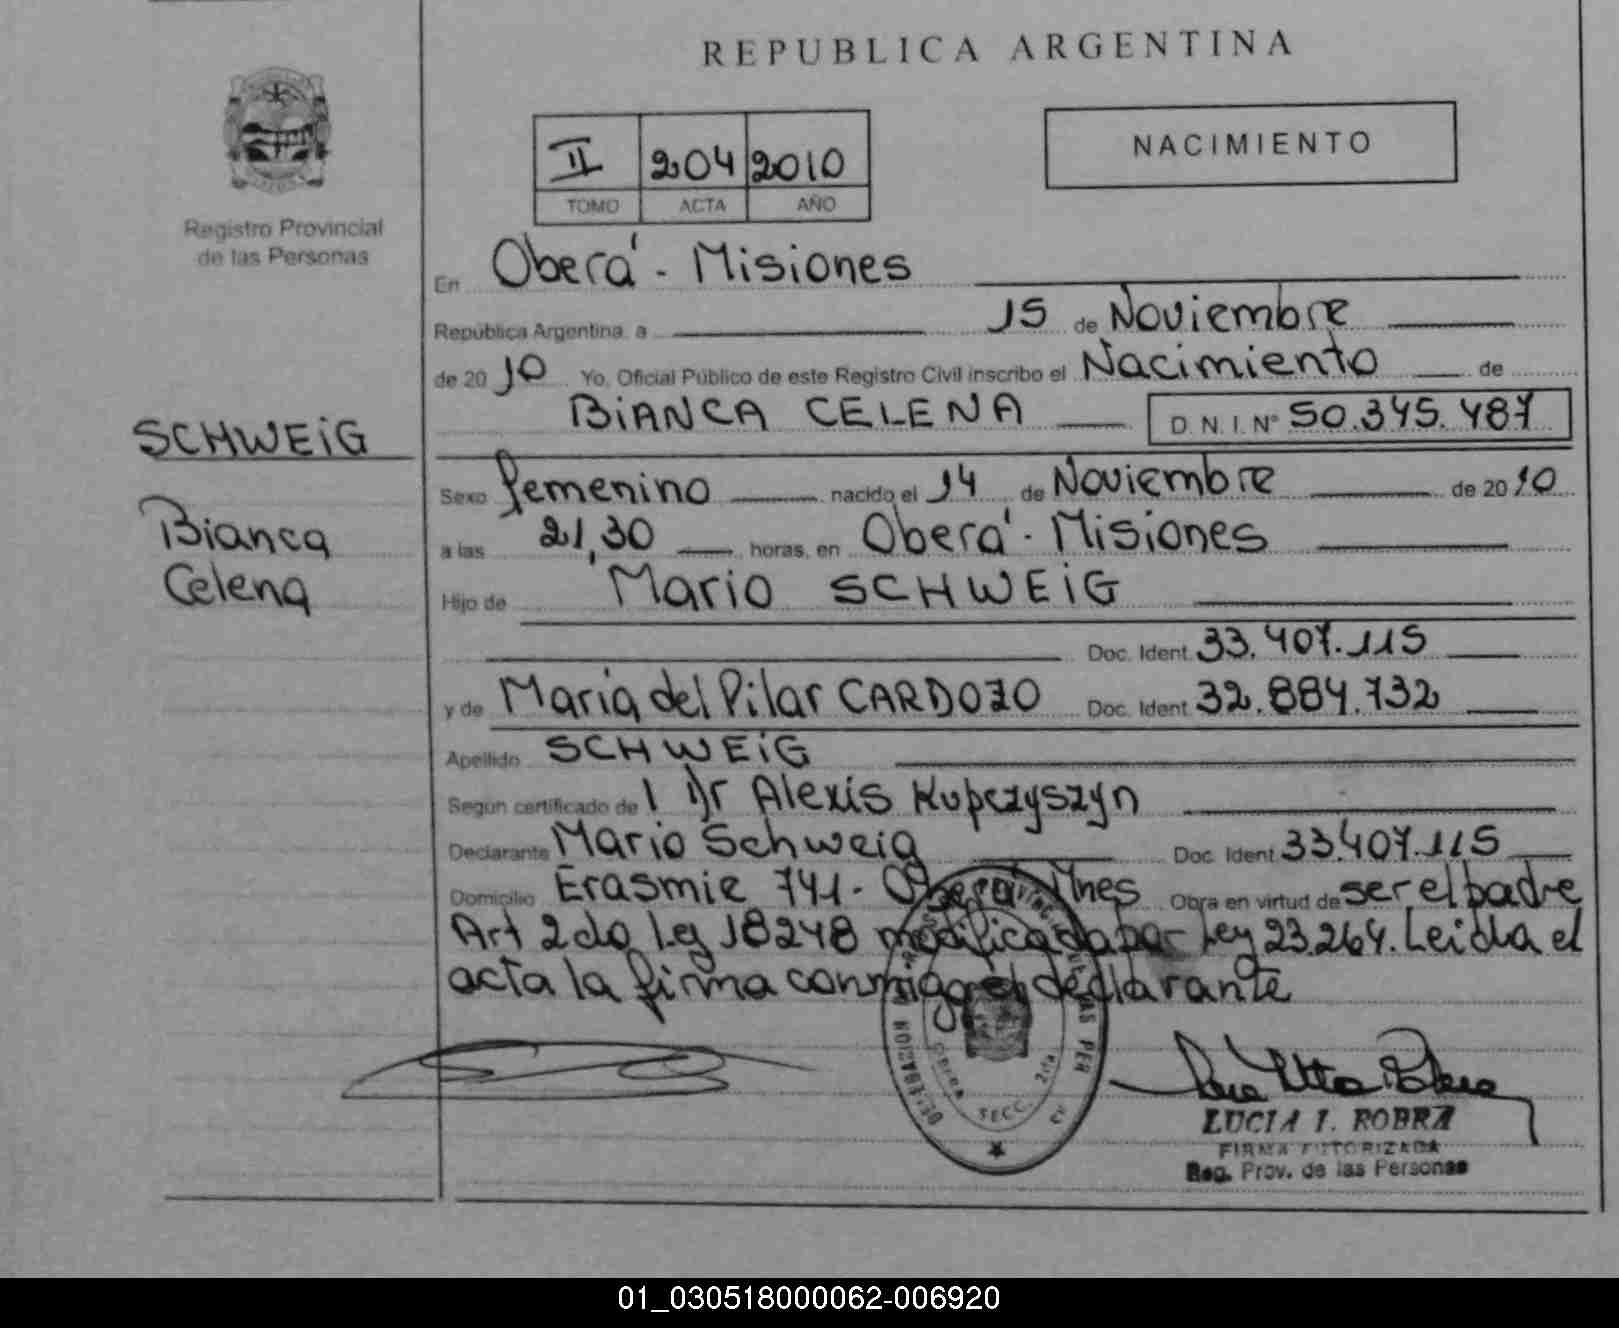 REPUBLICA ARGENTINA
II 204 2010
TOMO ACTA AÑO
NACIMIENTO
Registro Provincial
de las Personas
SCHWEIG
Bianca
Celena
En Oberá - Misiones
República Argentina, a 15 de Noviembre
de 2010 Yo, Oficial Público de este Registro Civil inscribo el Nacimiento de
BIANCA CELENA D. N. I. Nº 50.345.487
Sexo femenino nacido el 14 de Noviembre de 2010
a las 21,30 horas, en Oberá - Misiones
Hijo de Mario SCHWEIG
Doc. Ident. 33.407.115
y de Maria del Pilar CARDOZO Doc. Ident. 32.884.732
Apellido SCHWEIG
Según certificado de l Dr Alexis Kupczyszyn
Declarante Mario Schweig Doc. Ident. 33.407.115
Domicilio Erasmie 741 - Oberá Mnes Obra en virtud de ser el padre
Art 2do Ley 18248 modificada por Ley 23.264. Leida el
acta la firma conmigo el declarante
SECC. 2da
LUCIA I. ROBRA
FIRMA AUTORIZADA
Reg. Prov. de las Personas
01_030518000062-006920